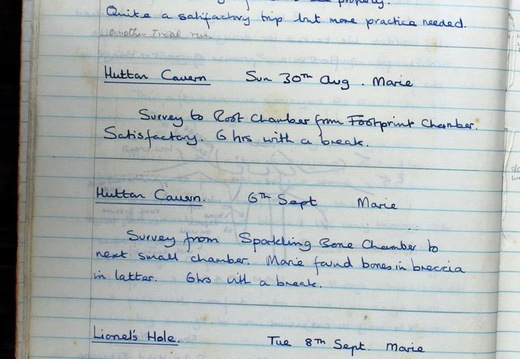 properly.
Quite a satifactory trip but more practice needed.
another trial run
Hutton Cavern Sun 30th Aug. Marie
Survey to Root Chamber from Footprint Chamber.
Satisfactory. 6 hrs with a break.
Hutton Cavern. 6th Sept Marie
Survey from Sparkling Bone Chamber to
next small chamber. Marie found bones in breccia
in latter. 6hrs with a break.
Lionel's Hole. Tue 8th Sept. Marie